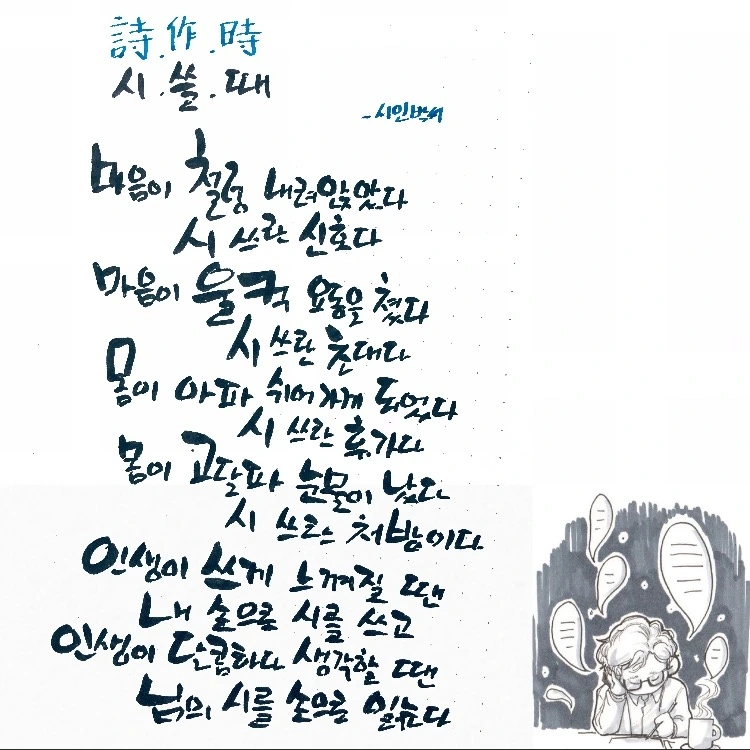 詩.作.時
시.쓸.때
-시인박씨
마음이 철렁 내려앉았다
시 쓰란 신호다
마음이 울컥 요동을 쳤다
시 쓰란 초대다
몸이 아파 쉬어가게 되었다
시 쓰란 휴가다
몸이 고달파 눈물이 났다
시 쓰란 처방이다
인생이 쓰게 느껴질 땐
내 손으로 시를 쓰고
인생이 달콤하다 생각할 땐
님의 시를 손으로 읽는다